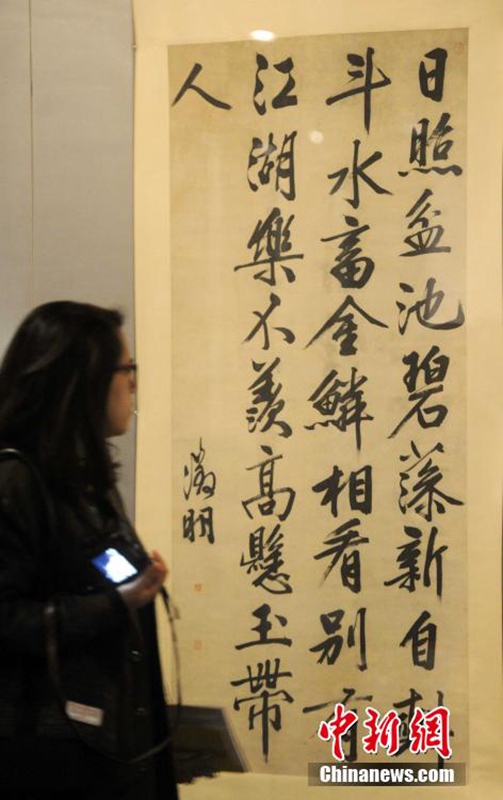 日照盆池碧藻新自
斗水畜金鱗相看別有
江湖樂不羨高懸玉帶
人
徵明
中新网
Chinanews.com